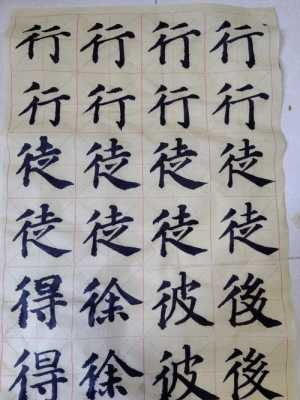 行行行行
行行行行
徒徒徒徒
徒徒徒徒
得徐彼後
得徐彼後